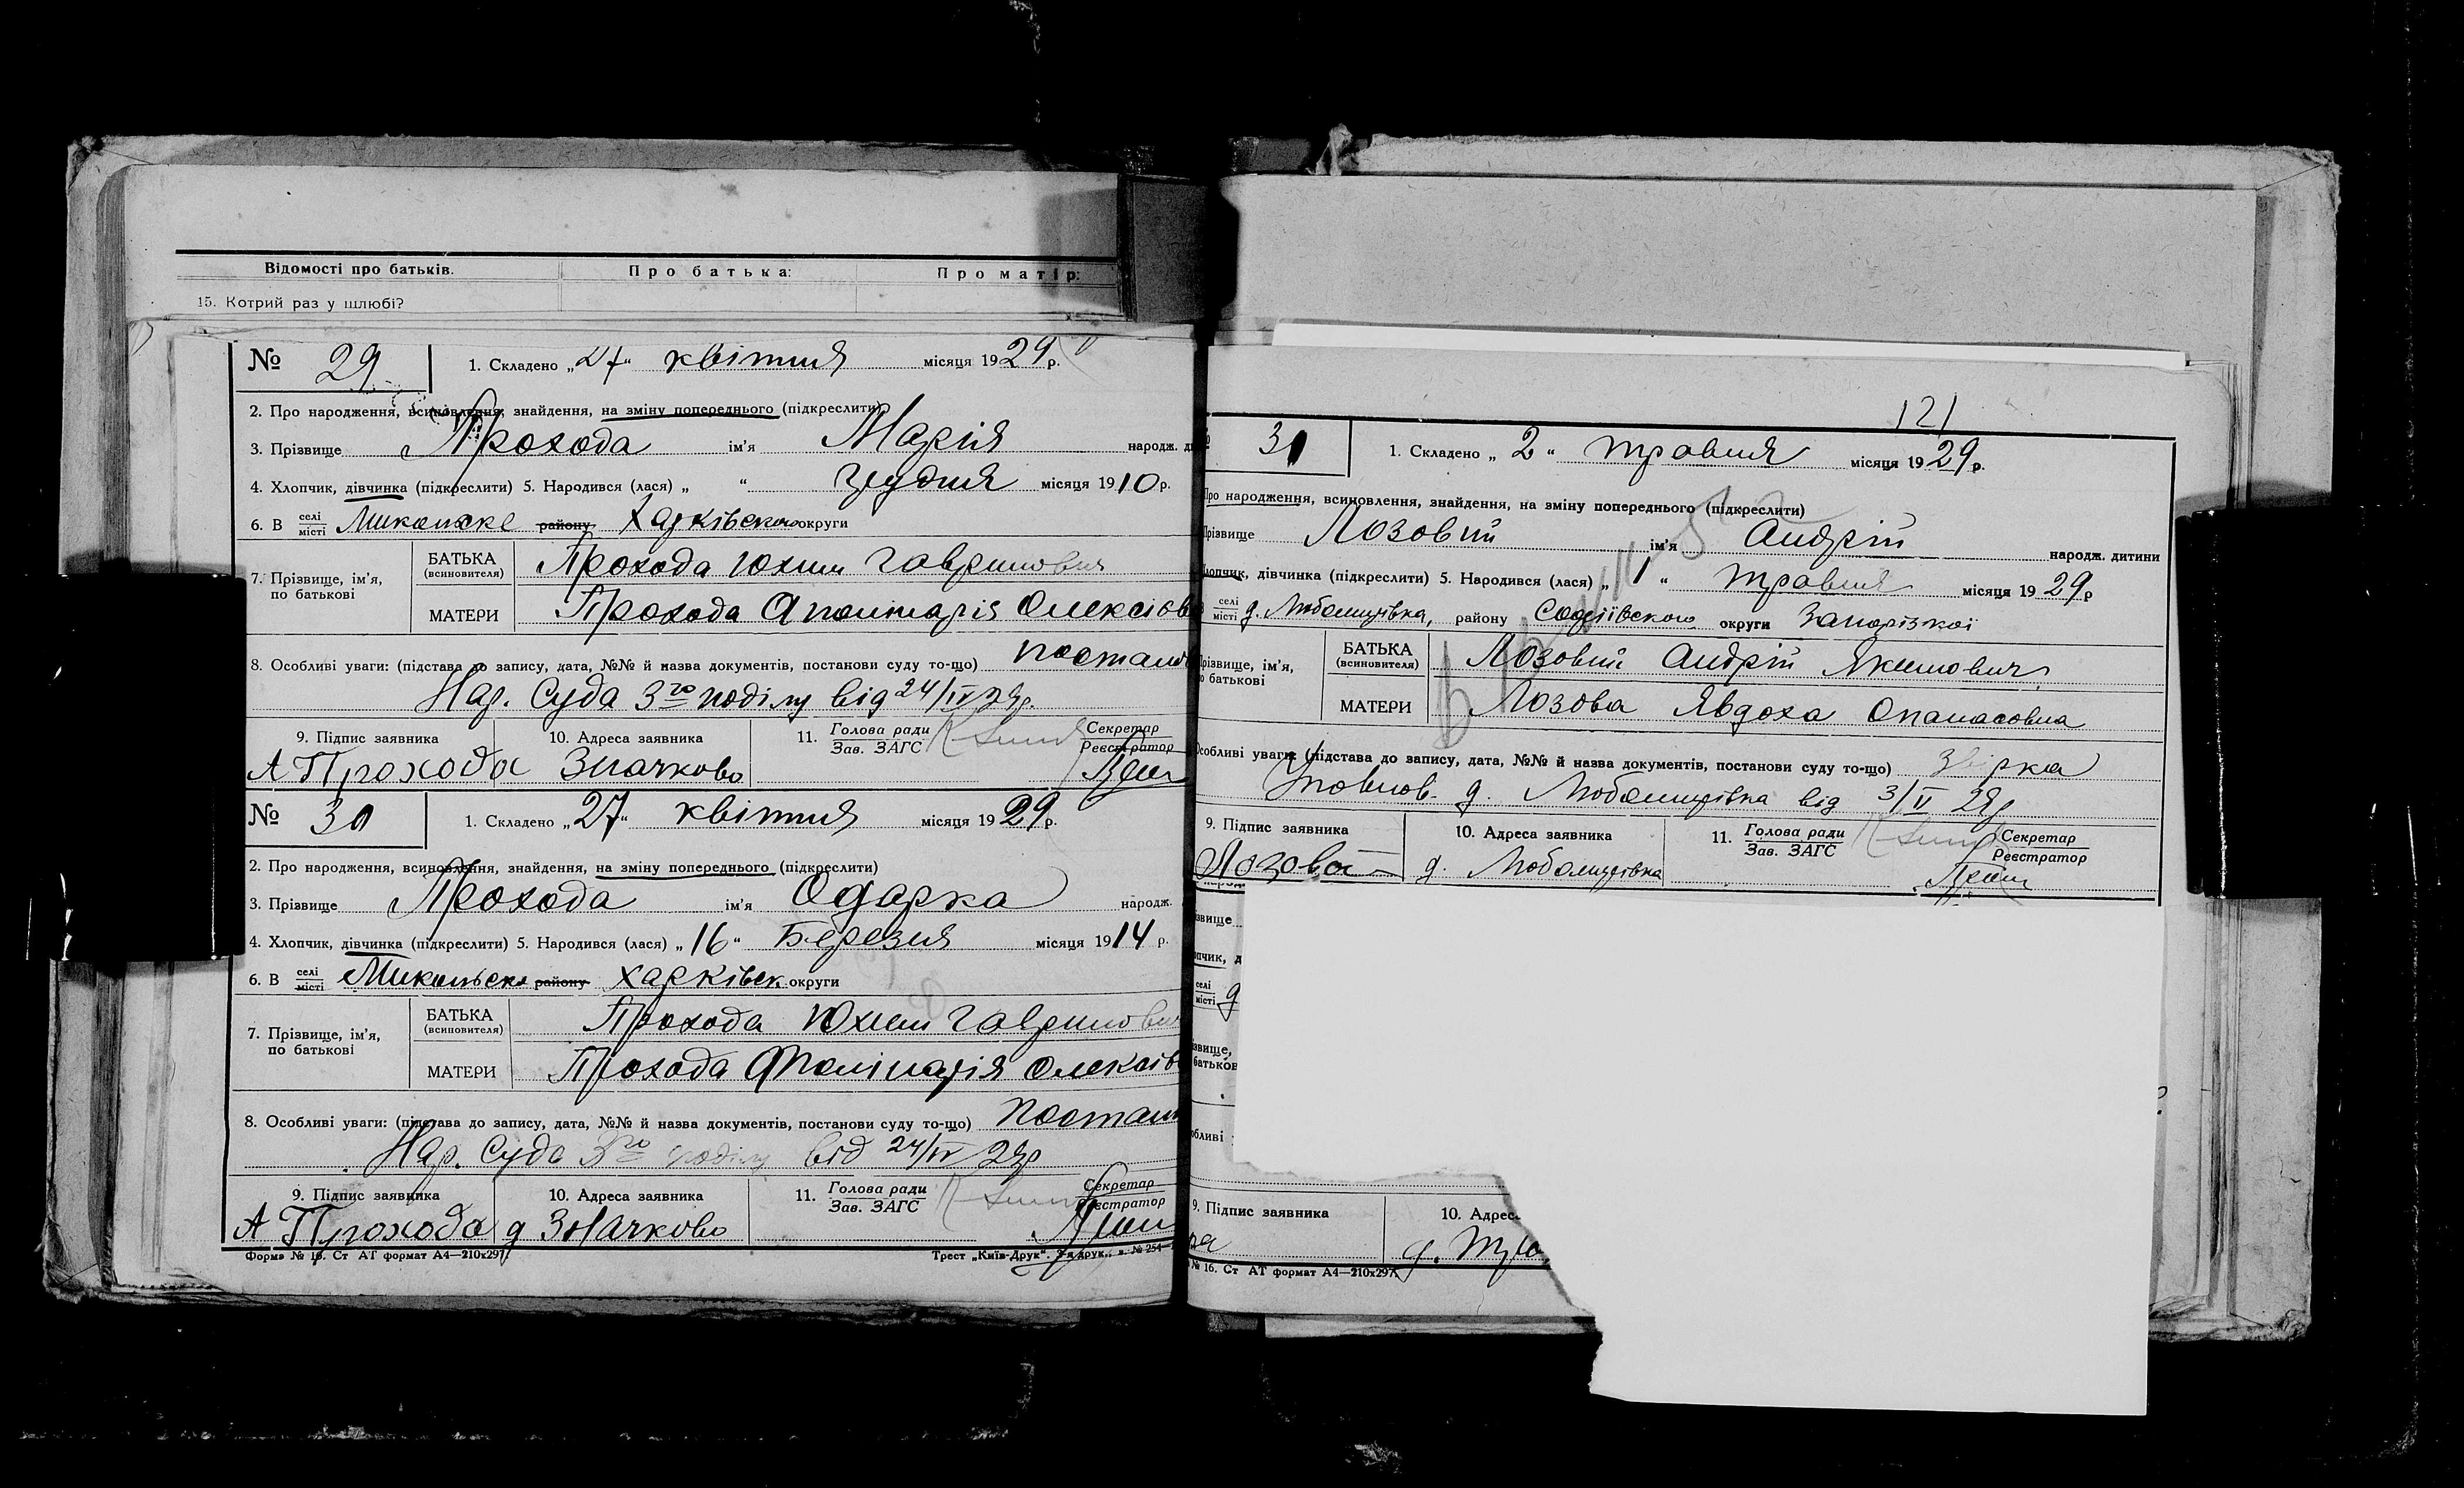 Відомості про батьків. Про батька: Про матір:
15. Котрий раз у шлюбі?
№ 29 1. Складено „27“ квітня місяця 1929 р.
2. Про народження, всиновлення, знайдення, на зміну попереднього (підкреслити)
3. Прізвище Прохода ім’я Марія народж. ди
4. Хлопчик, дівчинка (підкреслити) 5. Народився (лася) „ “ грудня місяця 1910 р.
6. В селі місті району Харківського округи
7. Прізвище, ім’я, по батькові
БАТЬКА (всиновителя) Прохода Юхим Гаврилович
МАТЕРИ Прохода Аполінарія Олексіов
8. Особливі уваги: (підстава до запису, дата, №№ й назва документів, постанови суду то-що) постанов
Нар. Суда 3го поділу від 24/IV 29р.
9. Підпис заявника 10. Адреса заявника 11. Голова ради Зав. ЗАГС Секретар Реєстратор
А Прохода Значково
№ 30 1. Складено „27“ квітня місяця 1929 р.
2. Про народження, всиновлення, знайдення, на зміну попереднього (підкреслити)
3. Прізвище Прохода ім’я Одарка народж.
4. Хлопчик, дівчинка (підкреслити) 5. Народився (лася) „16“ Березня місяця 1914 р.
6. В селі місті Микольське району Харківськ округи
7. Прізвище, ім’я, по батькові
БАТЬКА (всиновителя) Прохода Юхим Гаврилович
МАТЕРИ Прохода Аполінарія Олексіов
8. Особливі уваги: (підстава до запису, дата, №№ й назва документів, постанови суду то-що) Постан
Нар. Суда 3го поділу від 24/IV 29р
9. Підпис заявника 10. Адреса заявника 11. Голова ради Зав. ЗАГС Секретар Реєстратор
А Прохода д Значково
Форма № 16. Ст АТ формат А4—210х297. Трест „Київ-Друк“. 3-я друк., з. № 254
121
31 1. Складено „2“ травня місяця 1929 р.
Про народження, всиновлення, знайдення, на зміну попереднього (підкреслити)
Прізвище Лозовий ім’я Андрій народж. дитини
Хлопчик, дівчинка (підкреслити) 5. Народився (лася) „1“ травня місяця 1929 р
селі місті д. Любомирівка, району Софіївського округи Запорізкої
Прізвище, ім’я, по батькові
БАТЬКА (всиновителя) Лозовий Андрій Якимович
МАТЕРИ Лозова Явдоха Опанасовна
Особливі уваги: (підстава до запису, дата, №№ й назва документів, постанови суду то-що)
Уповнов. д. Любомирівка від 3/V 29р
9. Підпис заявника 10. Адреса заявника 11. Голова ради Зав. ЗАГС Секретар Реєстратор
Лозовой д. Любомирівка
звище
пчик, д
селі місті д
звище,
батьков
обливі
9. Підпис заявника 10. Адрес
ра д.
№ 16. Ст АТ формат А4—210х297.